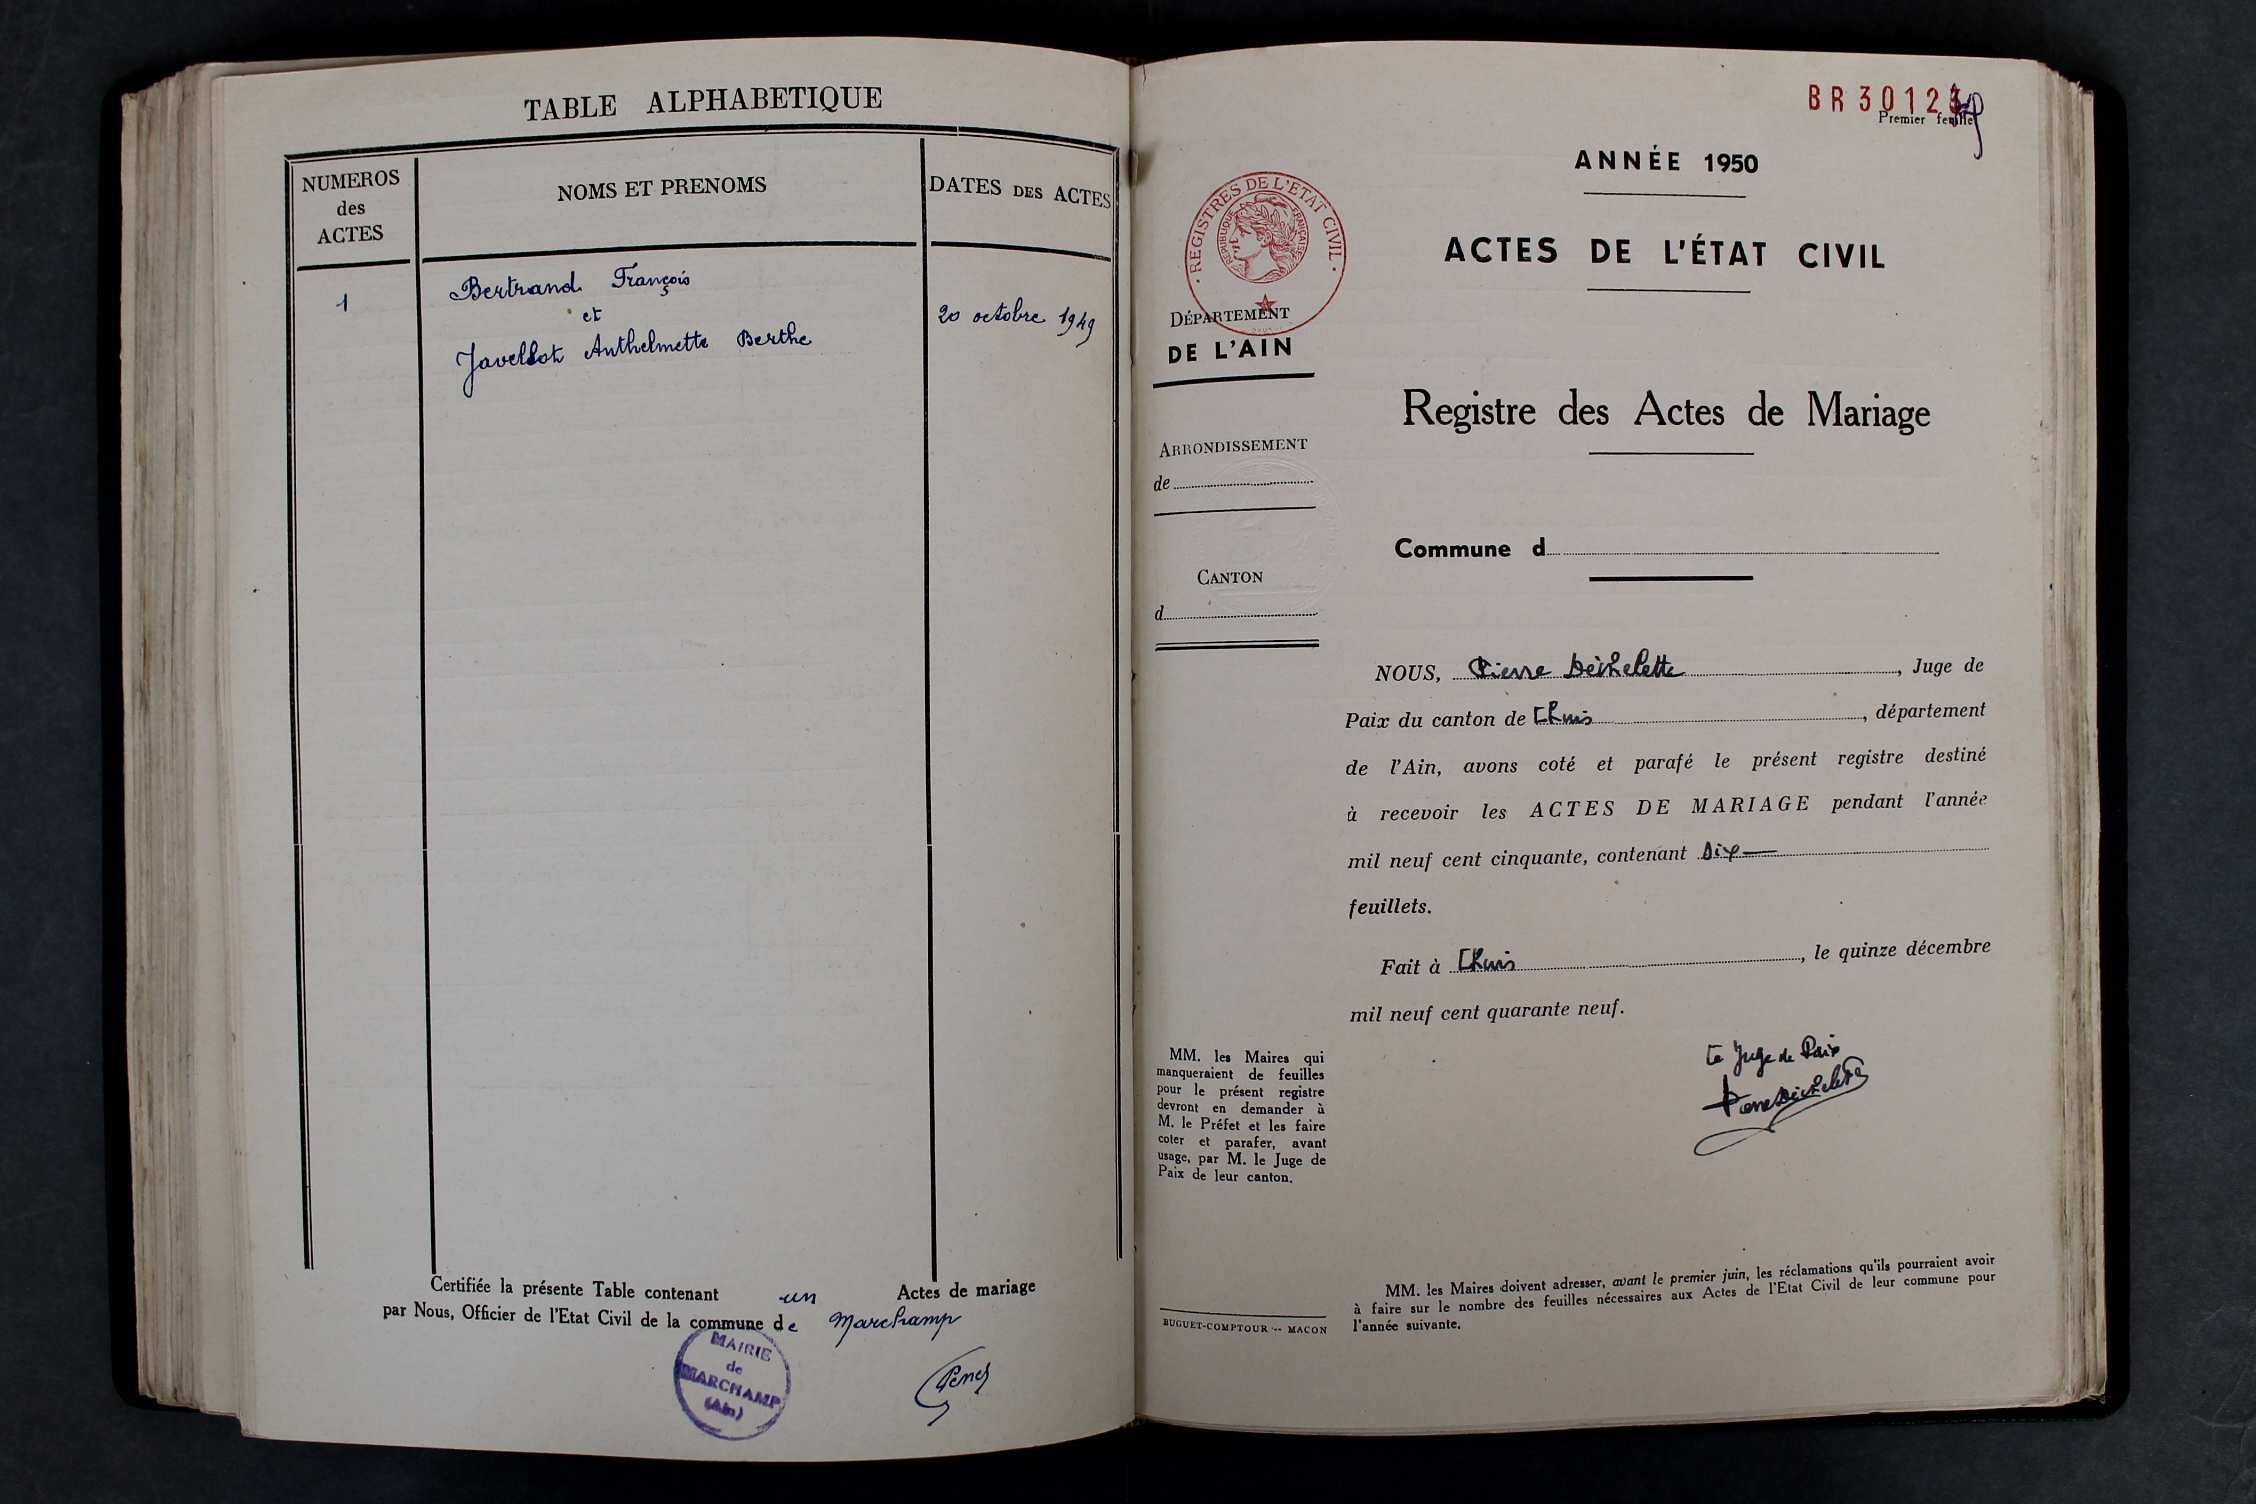 TABLE ALPHABETIQUE
NUMEROS
des
ACTES
NOMS ET PRENOMS
DATES DES ACTES
1
Bertrand François
et
Javellot Anthelmette Berthe
20 octobre 1949
Certifiée la présente Table contenant un Actes de mariage
par Nous, Officier de l'Etat Civil de la commune de Marchamp
MAIRIE
de
MARCHAMP
(Ain)
BR3012
Premier feuillet
ANNÉE 1950
REGISTRES DE L'ETAT CIVIL
REPUBLIQUE FRANÇAISE
ACTES DE L'ÉTAT CIVIL
DÉPARTEMENT
DE L'AIN
Registre des Actes de Mariage
ARRONDISSEMENT
de
Commune d
CANTON
d
NOUS, Pierre Déchelette, Juge de
Paix du canton de Lhuis, département
de l'Ain, avons coté et parafé le présent registre destiné
à recevoir les ACTES DE MARIAGE pendant l'année
mil neuf cent cinquante, contenant Dix
feuillets.
Fait à Lhuis, le quinze décembre
mil neuf cent quarante neuf.
Le Juge de Paix
Pierre Déchelette
MM. les Maires qui
manqueraient de feuilles
pour le présent registre
devront en demander à
M. le Préfet et les faire
coter et parafer, avant
usage, par M. le Juge de
Paix de leur canton.
BUGUET-COMPTOUR -- MACON
MM. les Maires doivent adresser, avant le premier juin, les réclamations qu'ils pourraient avoir
à faire sur le nombre des feuilles nécessaires aux Actes de l'Etat Civil de leur commune pour
l'année suivante.